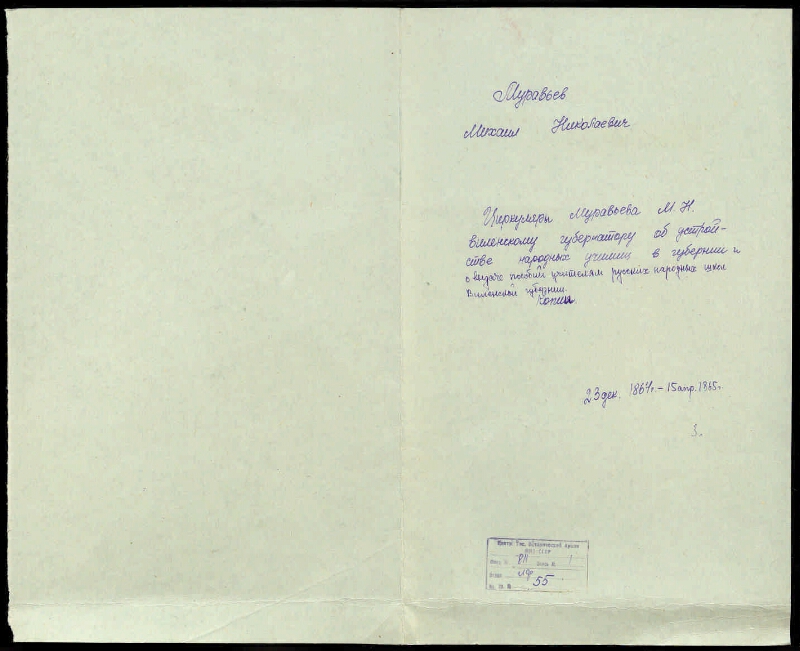 Муравьев
Михаил Николаевич
Циркуляры Муравьева М. Н.
виленскому губернатору об устрой-
стве народных училищ в губернии и
о выдаче пособий учителям русских народных школ
Виленской губернии.
Копии.
23 дек. 1864г. – 15 апр. 1865г.
3.
Архив
55